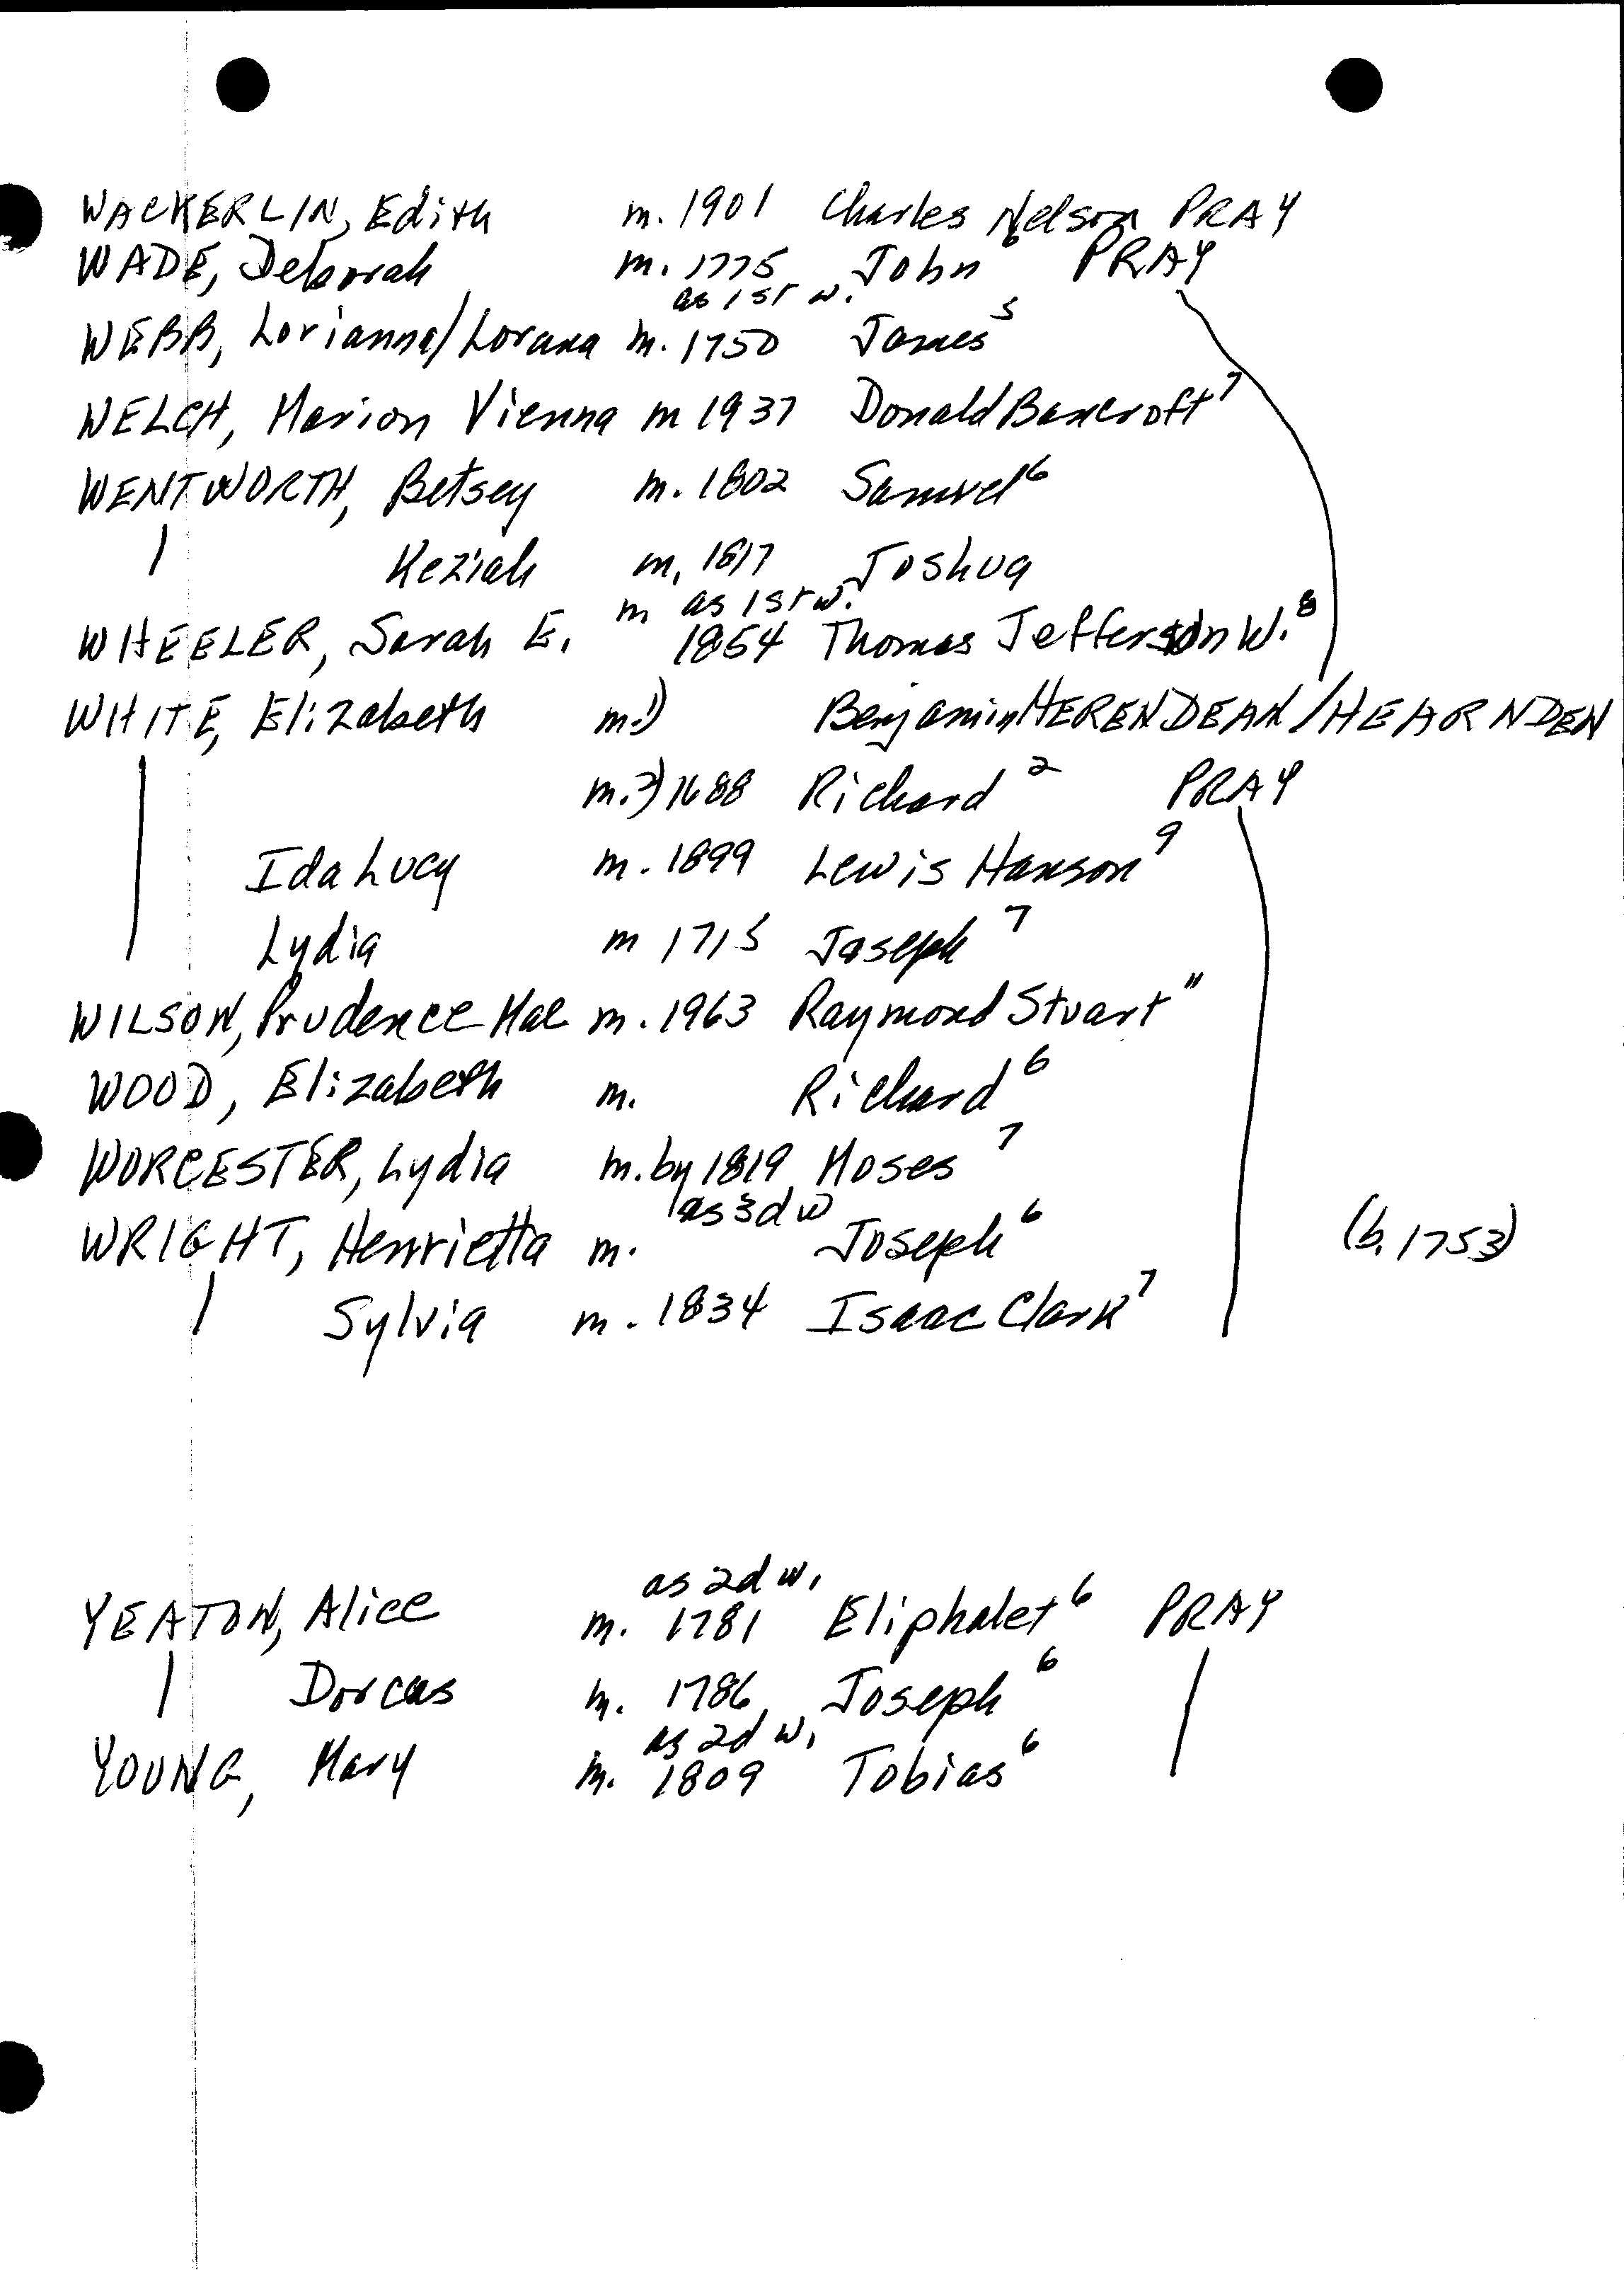 WACKERLIN, Edith m. 1901 Charles Nelson PRAY
WADE, Deborah m. 1775 John⁶ PRAY
as 1st w.
WEBB, Lorianna/Lorana m. 1750 James⁵
WELCH, Marion Vienna m 1937 Donald Bancroft⁷
WENTWORTH, Betsey m. 1802 Samuel⁶
Keziah m. 1817 Joshua
as 1st w.
WHEELER, Sarah E. m 1854 Thomas Jefferson W.⁸
WHITE, Elizabeth m. 1) Benjamin HERENDEAN/HEARNDEN
m. 2) 1688 Richard² PRAY
Ida Lucy m. 1899 Lewis Hanson⁹
Lydia m 1715 Joseph⁷
WILSON, Prudence Mae m. 1963 Raymond Stuart¹¹
WOOD, Elizabeth m. Richard⁶
WORCESTER, Lydia m. by 1819 Moses⁷
as 3d w
WRIGHT, Henrietta m. Joseph⁶ (b. 1753)
Sylvia m. 1834 Isaac Clark⁷
as 2d w.
YEATON, Alice m. 1781 Eliphalet⁶ PRAY
Dorcas m. 1786 Joseph⁶
as 2d w.
YOUNG, Mary m. 1809 Tobias⁶